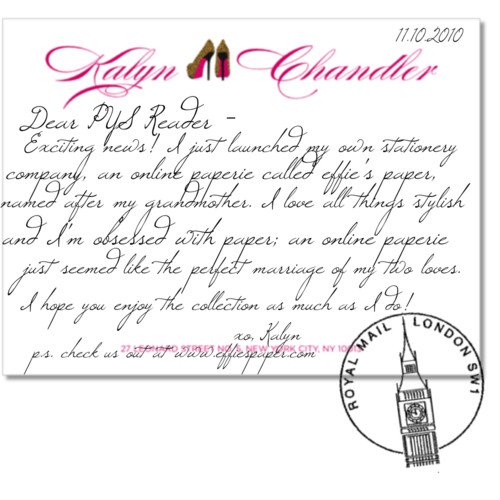 11.10.2010
Kalyn Chandler
Dear PYS Reader -
Exciting news! I just launched my own stationery
company, an online paperie called effie's paper,
named after my grandmother. I love all things stylish
and I'm obsessed with paper; an online paperie
just seemed like the perfect marriage of my two loves.
I hope you enjoy the collection as much as I do!
xo, Kalyn
27 LEONARD STREET NO. NEW YORK CITY, NY
p.s. check us out at www.effiespaper.com
ROYAL MAIL LONDON SW1